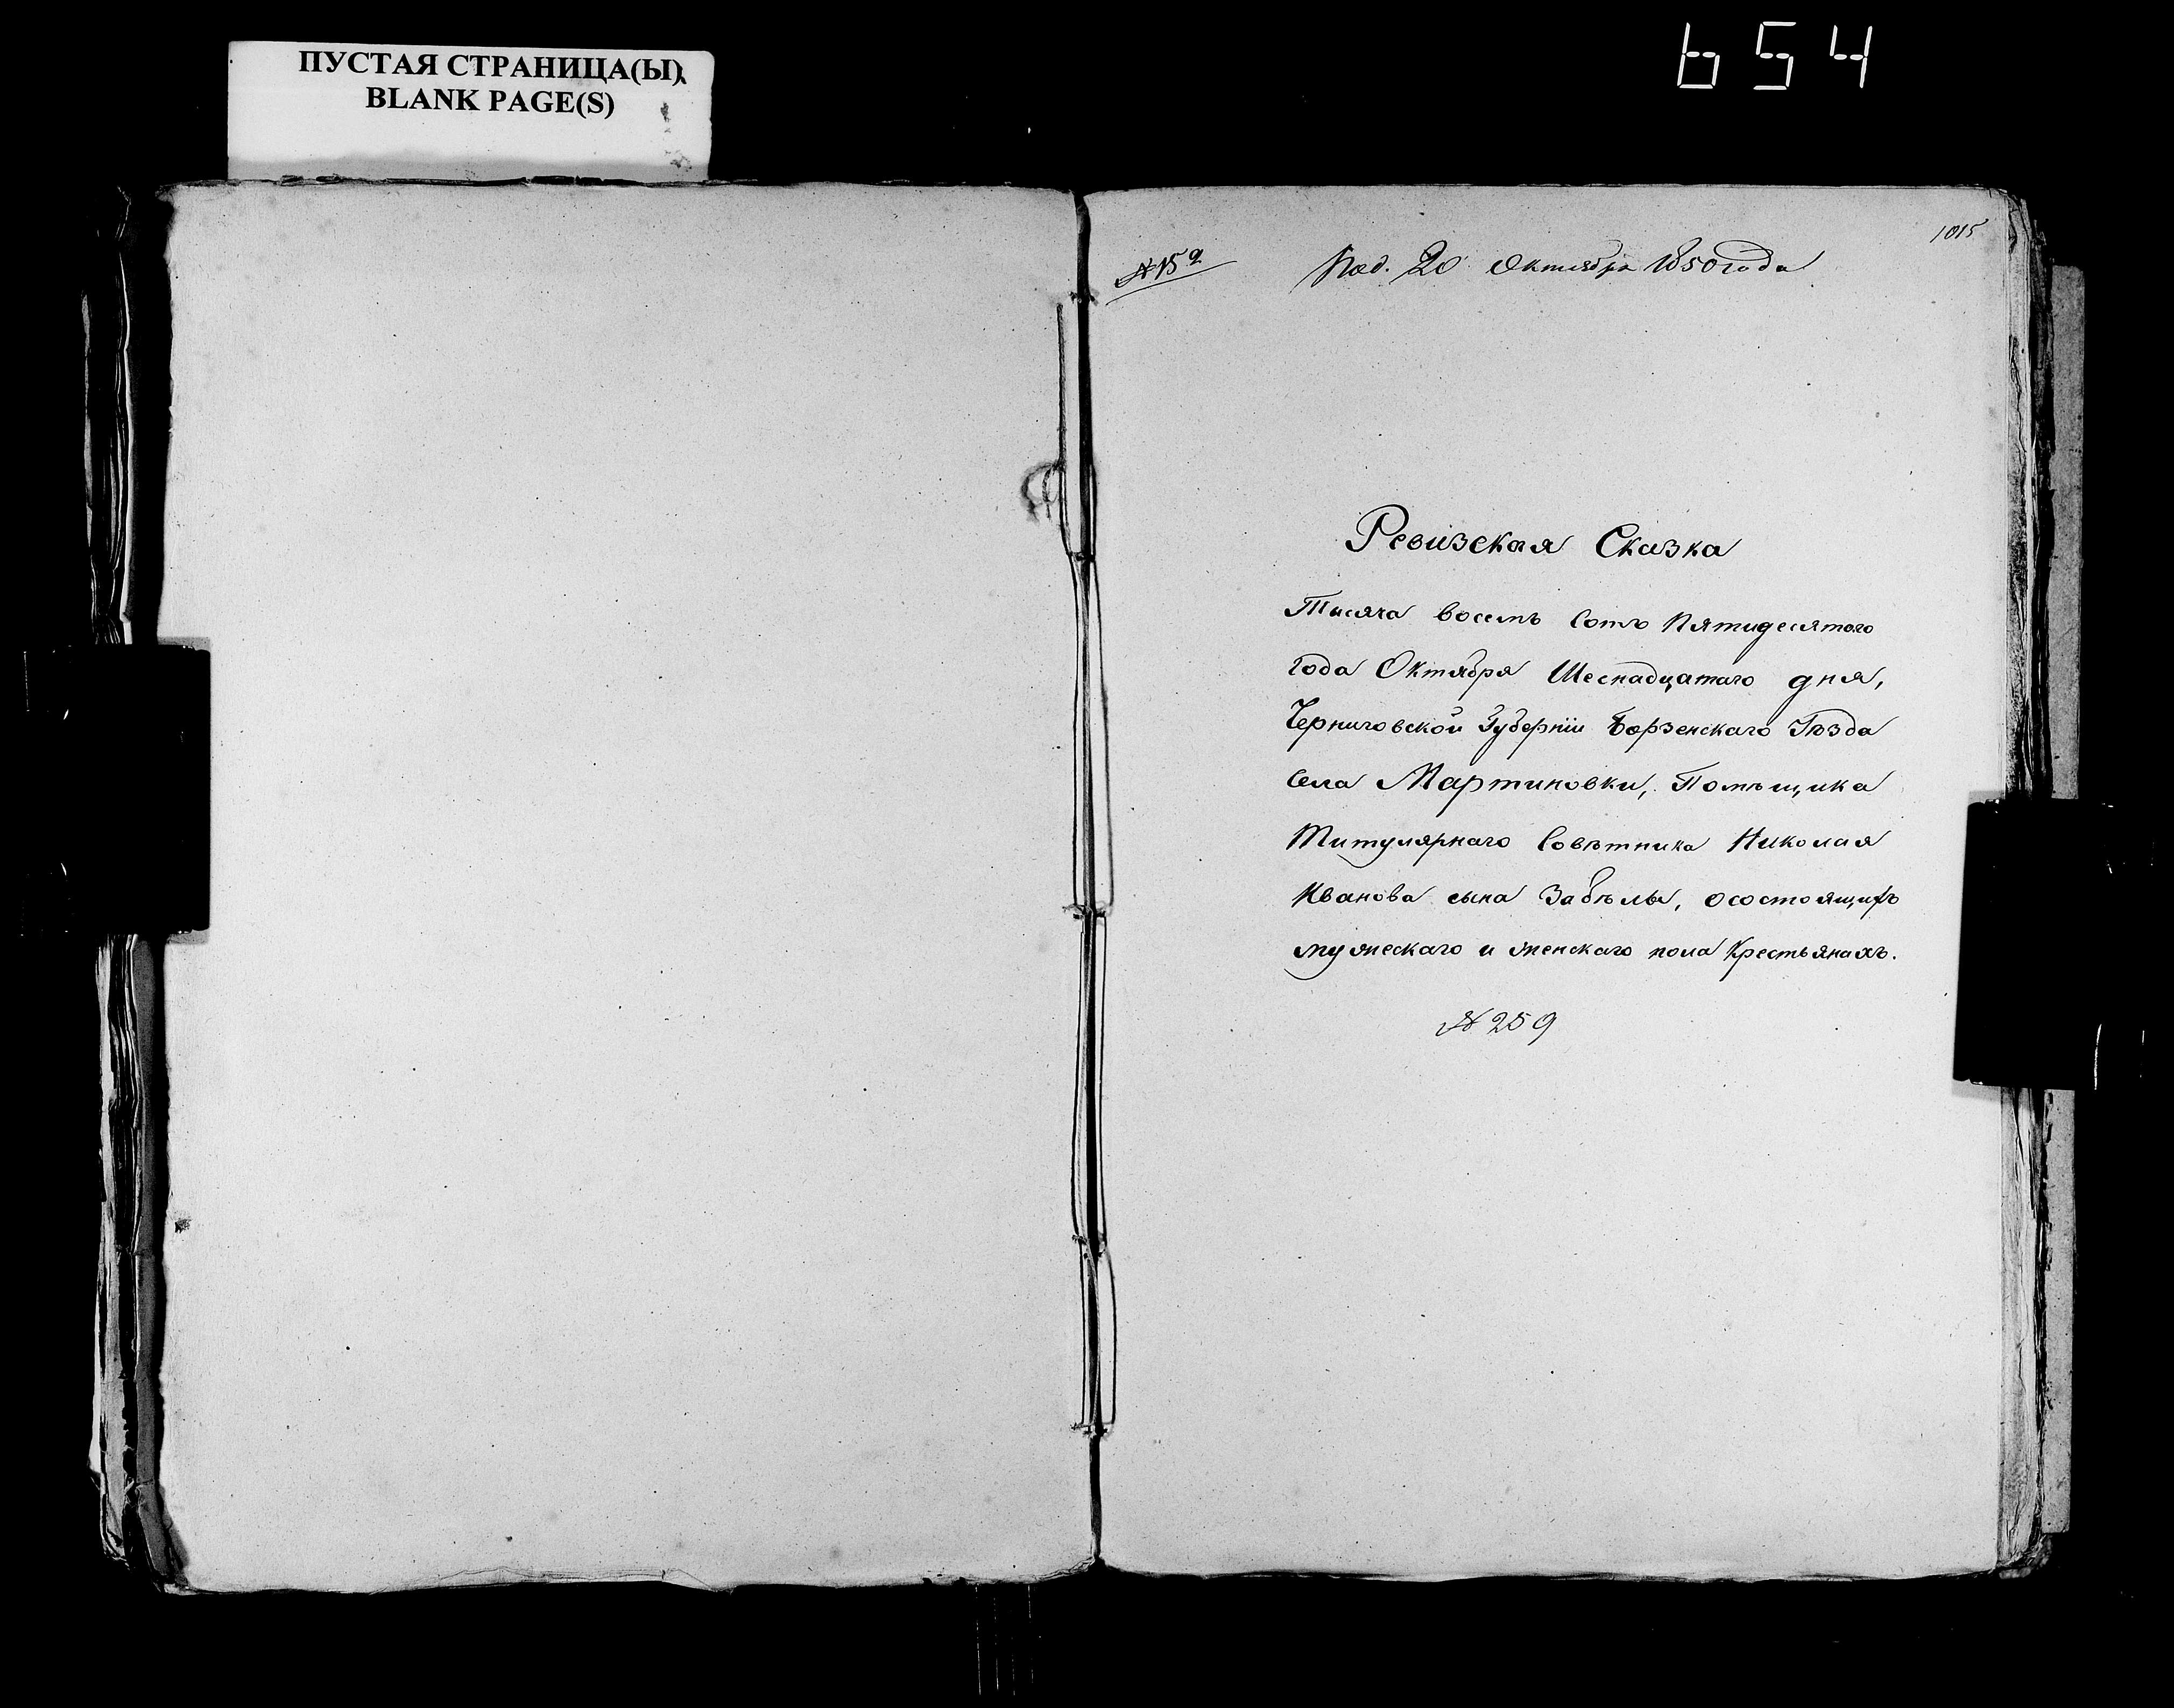 ПУСТАЯ СТРАНИЦА(Ы)
BLANK PAGE(S)
654
1015
№ 159
Под. 20 Октября 1850 года
Ревизская Сказка
Тысяча восемь сотъ Пятидесятого
года Октября Шеснадцатаго дня,
Черниговской Губерніи Борзенскаго Уѣзда
села Мартиновки, Помѣщика
Титулярнаго Совѣтника Николая
Иванова сына Забѣлы, о состоящихъ
мужескаго и женскаго пола Крестьянахъ.
№ 259